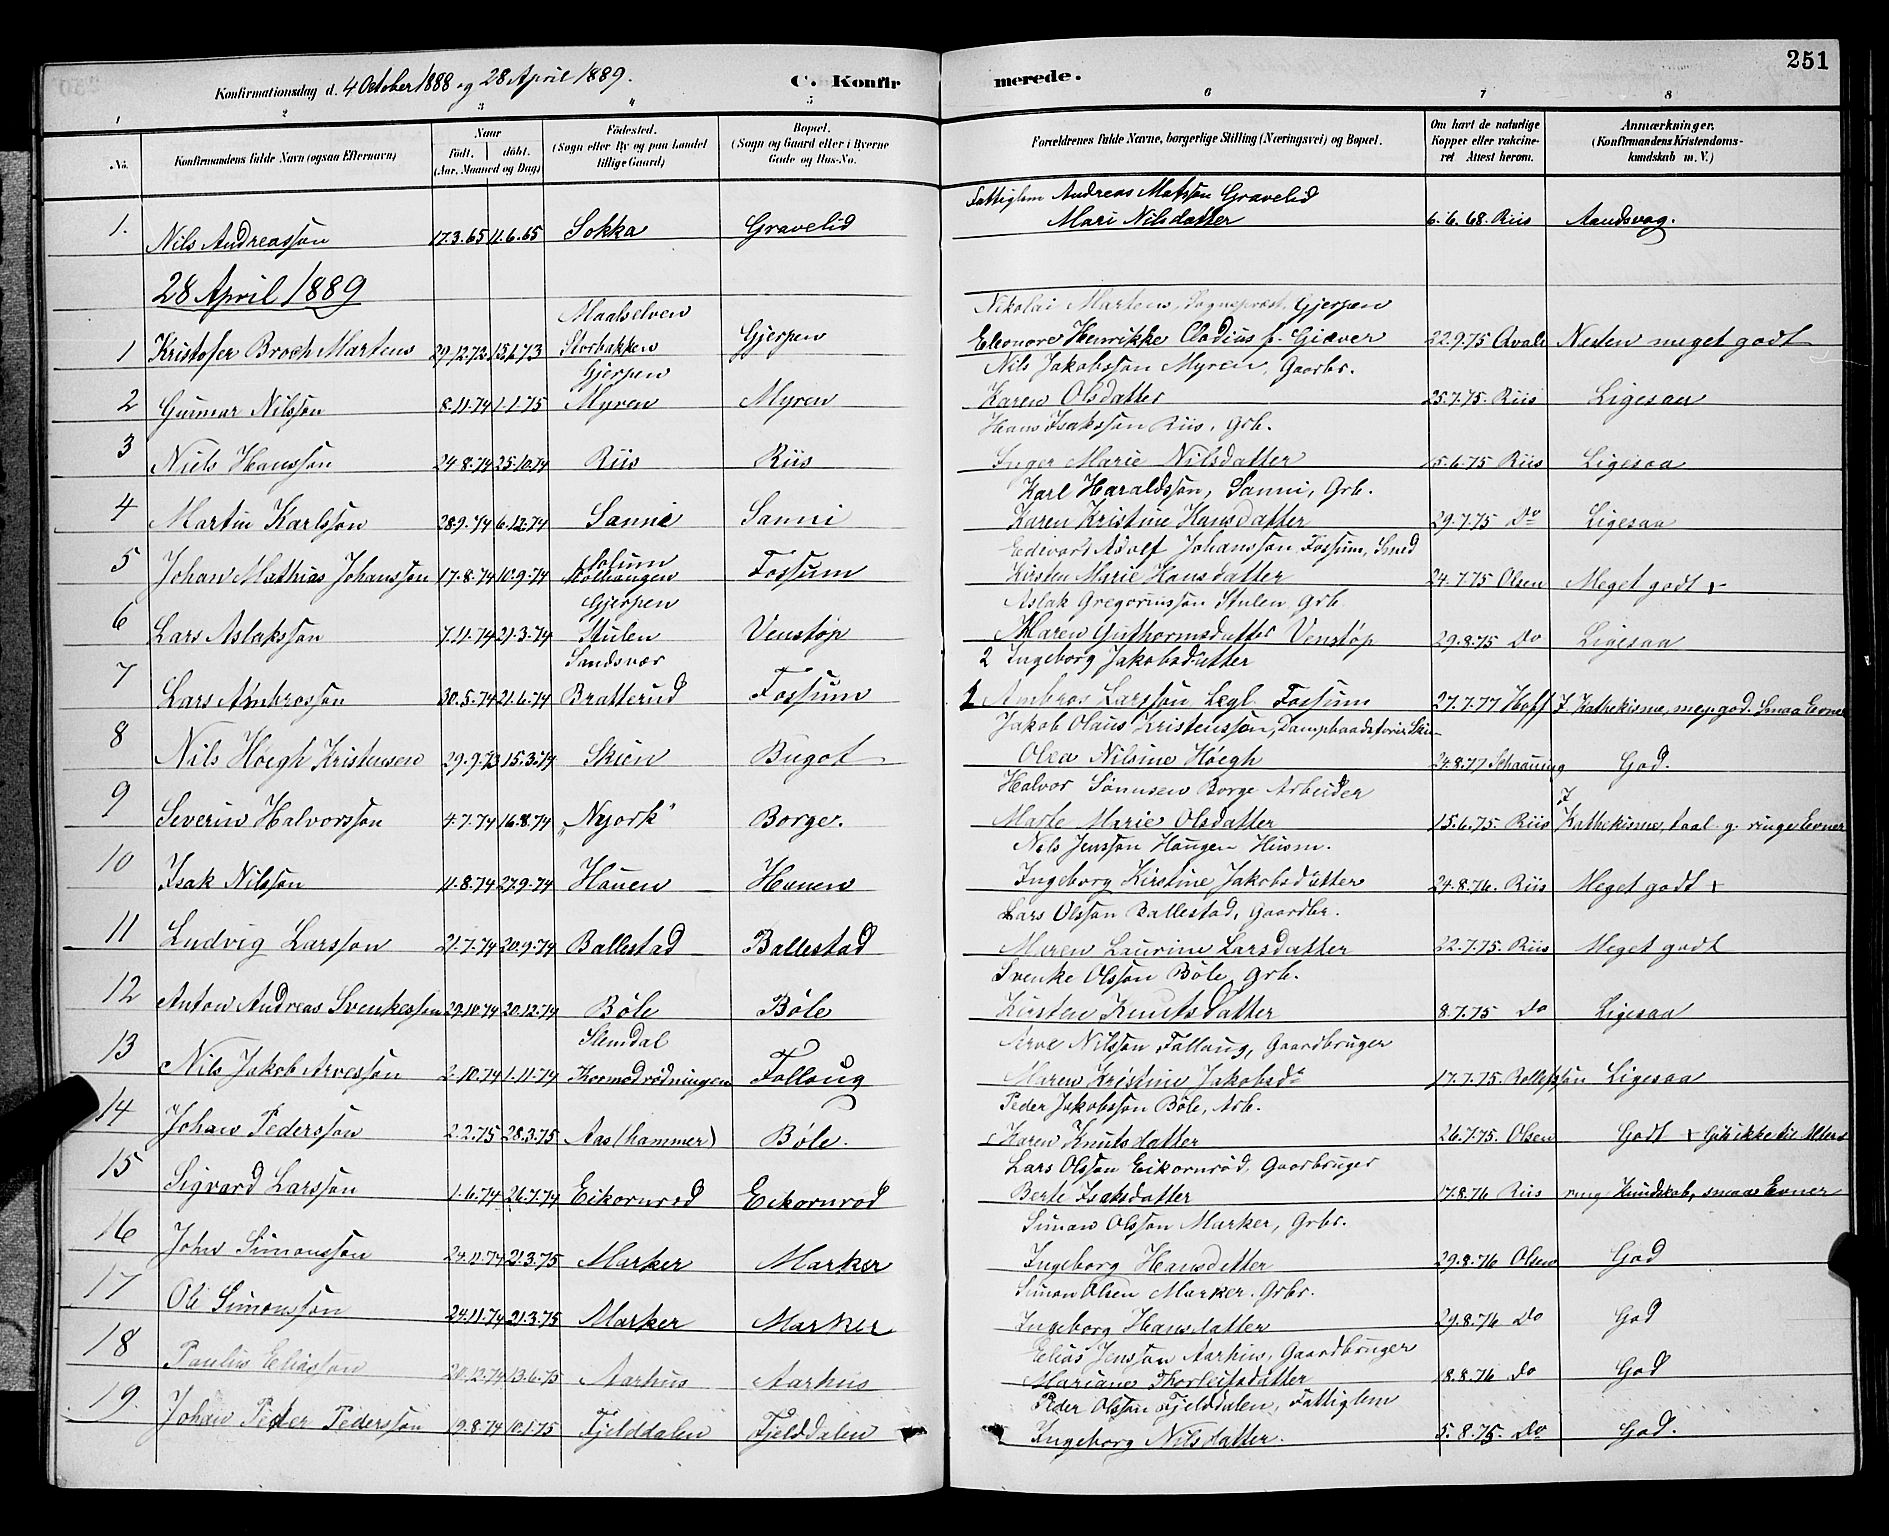 251
Konfirmationsdag d. 4 October 1888 og 28 April 1889.
C. Konfirmerede.
1 2 3 4 5 6 7 8
No.
Konfirmandens fulde Navn (ogsaa Efternavn)
Naar
Født. døbt.
(Aar, Maaned og Dag)
Fødested.
(Sogn eller By og paa Landet
tillige Gaard)
Bopæl.
(Sogn og Gaard eller i Byerne
Gade og Hus-No.
Forældrenes fulde Navne, borgerlige Stilling (Næringsvei) og Bopæl.
Om havt de naturlige
Kopper eller vakcineret
Attest herom.
Anmærkninger.
(Konfirmandens Kristendomskundskab
m. V.)
Fattiglem Andreas Matsson Gravelid
1. Nils Andreasson 17.3.65 11.6.65 Sokka Gravelid Mari Nilsdatter 6.6.68 Riis Aandsvag.
28 April 1889
Maalselven Nikolai Martens, Sogneprest, Gjerpen
1 Kristofer Broch Martens 29.12.72 15.1.73 Storbakken Gjerpen Eleonore Henrikke Cladius f. Giæver 22.9.75 Qvale Næsten meget godt
Gjerpen Nils Jakobsson Myren, Gaarbr.
2 Gunnar Nilsson 8.11.74 1.1.75 Myren Myren Karen Olsdatter 25.7.75. Riis Ligesaa
Hans Isaksson Riis, Grb.
3 Niels Hansson 24.8.74 25.10.74 Riis Riis Inger Marie Nilsdatter 15.6.75 Riis Ligesaa
Karl Haraldsson, Sanni, Grb.
4 Martin Karlsson 28.9.74 6.12.74 Sanni Sanni Karen Kristine Hansdatter 29.7.75 Do Ligesaa
Solum Edevard Adolf Johansson Fossum, Smed
5 Johan Mathias Johansson 17.8.74 10.9.74 Fossum Kirsten Marie Hansdatter 24.7.75 Olsen Meget godt +
Gjerpen Aslak Gregoriusson Stulen Grb
6 Lars Aslaksson 7.11.74 21.3.74 Stulen Venstøp Maren Guthormsdatter Venstøp 29.8.75 Do Ligesaa
Sandsvær 2 Ingeborg Jakobsdatter
7 Lars Ambrosson 30.5.74 21.6.74 Bratterud Fossum 1 Ambros Larsson Lægl. Fossum 27.7.77 Hoff I Kathekisme, meg. god. Smaa Evner
Jakob Olaus Kristensson, Dampbaadsfører Ski-
8 Nils Høegh Kristensen 29.9.73 15.3.74 Skien Bugot Olea Nilsine Høegh 24.8.77 Schaaning God.
Halvor Sønnsen Borge Arbeider
9 Severin Halvorsson 4.7.74 16.8.74 "Nyork" Borge. Marte Marie Olsdatter 15.6.75. Riis I Kathekisme, taal. g. ringe Evner
Nils Jensson Haugen Husm.
10 Isak Nilsson 11.8.74 27.9.74 Hauen Hauen Ingeborg Kirstine Jakobsdatter 24.8.76. Riis Meget godt +
Lars Olsson Ballestad, Gaardbr.
11 Ludvig Larsson 21.7.74 20.9.74 Ballestad Ballestad Maren Laurine Larsdatter 22.7.75. Riis Meget godt
Svenke Olsson Bøle, Grb.
12 Anton Andreas Svenkesson 29.10.74 20.12.74 Bøle Bøle Kirsten Knutsdatter 8.7.75 do Ligesaa
Slemdal Arve Nilsson Follaug, Gaardbruger
13 Nils Jakob Arvesson 2.10.74 1.11.74 Kormodrødningen Follaug Maren Kristine Jakobsdr 17.7.75 Rollefssøn Ligesaa
Peder Jakobsson Bøle, Arb.
14 Johan Pedersson 2.2.75 28.3.75 Aas (hammer) Bøle. Karen Knutsdatter 26.7.75. Olsen Godt + Gik ikke til Alters
Lars Olsson Eikornrød, Gaardbruger
15 Sigvard Larsson 1.6.74 26.7.74 Eikornrød Eikornrød Berte Isaksdatter 17.8.76 Riis ring Kundskab, smaa Evner
Simon Olsson Marker, Grbr.
16 John Simonsson 24.11.74 21.3.75 Marker Marker Ingeborg Hansdatter 29.8.76 Olsen God
Simon Olsen Marker. Grbr.
17 Ole Simonsson 24.11.74 21.3.75 Marker Marker Ingeborg Hansdatter 29.8.76 Do God
Elias Jensson Aarhus, Gaardbruger
18 Paulus Eliasson 20.12.74 13.6.75 Aarhus Aarhus Mariane Thorleifsdatter 18.8.76 do God
Peder Olsson Fjelddalen, Fattiglem
19. Johan Peder Pedersson 19.8.74 10.1.75 Fjelddalen Fjelddalen Ingeborg Nilsdatter. 5.8.75. Do God.